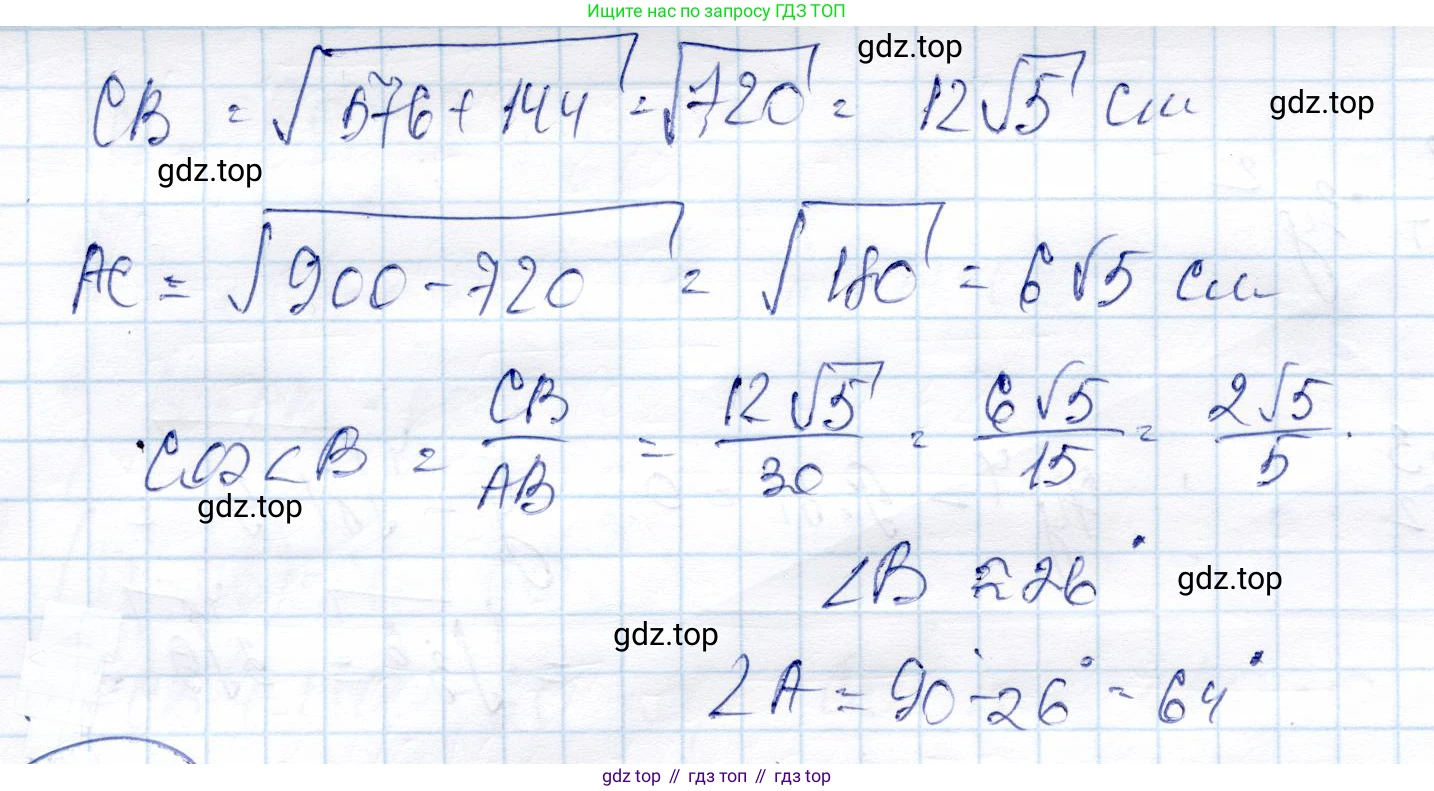 Ищите нас по запросу ГДЗ ТОП
gdz.top
CB = √576 + 144 = √720 = 12√5 см
gdz.top
gdz.top
AC = √900 - 720 = √180 = 6√5 см
cos∠B = CB/AB = 12√5/30 = 6√5/15 = 2√5/5.
gdz.top
∠B ≈ 26°
gdz.top
gdz.top
∠A = 90° - 26° = 64°
gdz top // гдз топ // gdz top